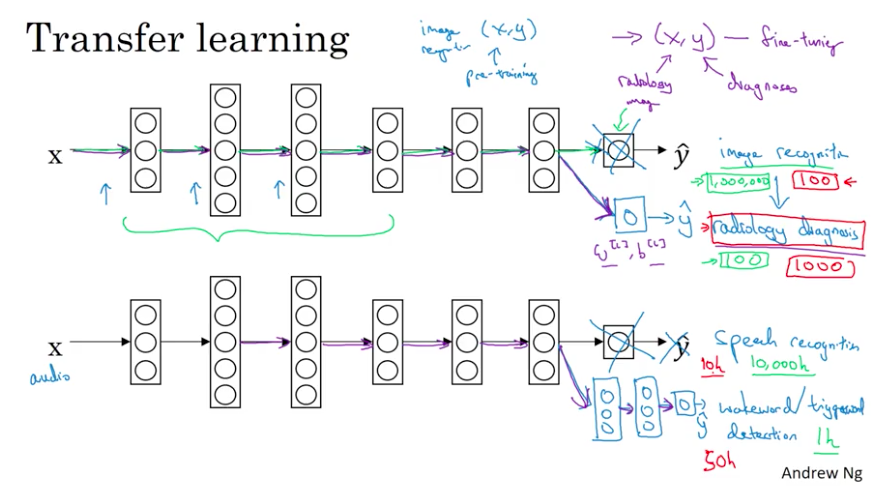 Transfer learning
image recognition (x,y)
pre-training
→ (x,y) — fine-tuning
radiology
diagnoses
x
ŷ
image recognition
→ 1,000,000 100 ←
ŷ
radiology diagnosis
w[L], b[L]
→ 100 1000
x
audio
ŷ
Speech recognition
10h 10,000h
ŷ
wakeword/triggerword
detection 1h
50h
Andrew Ng